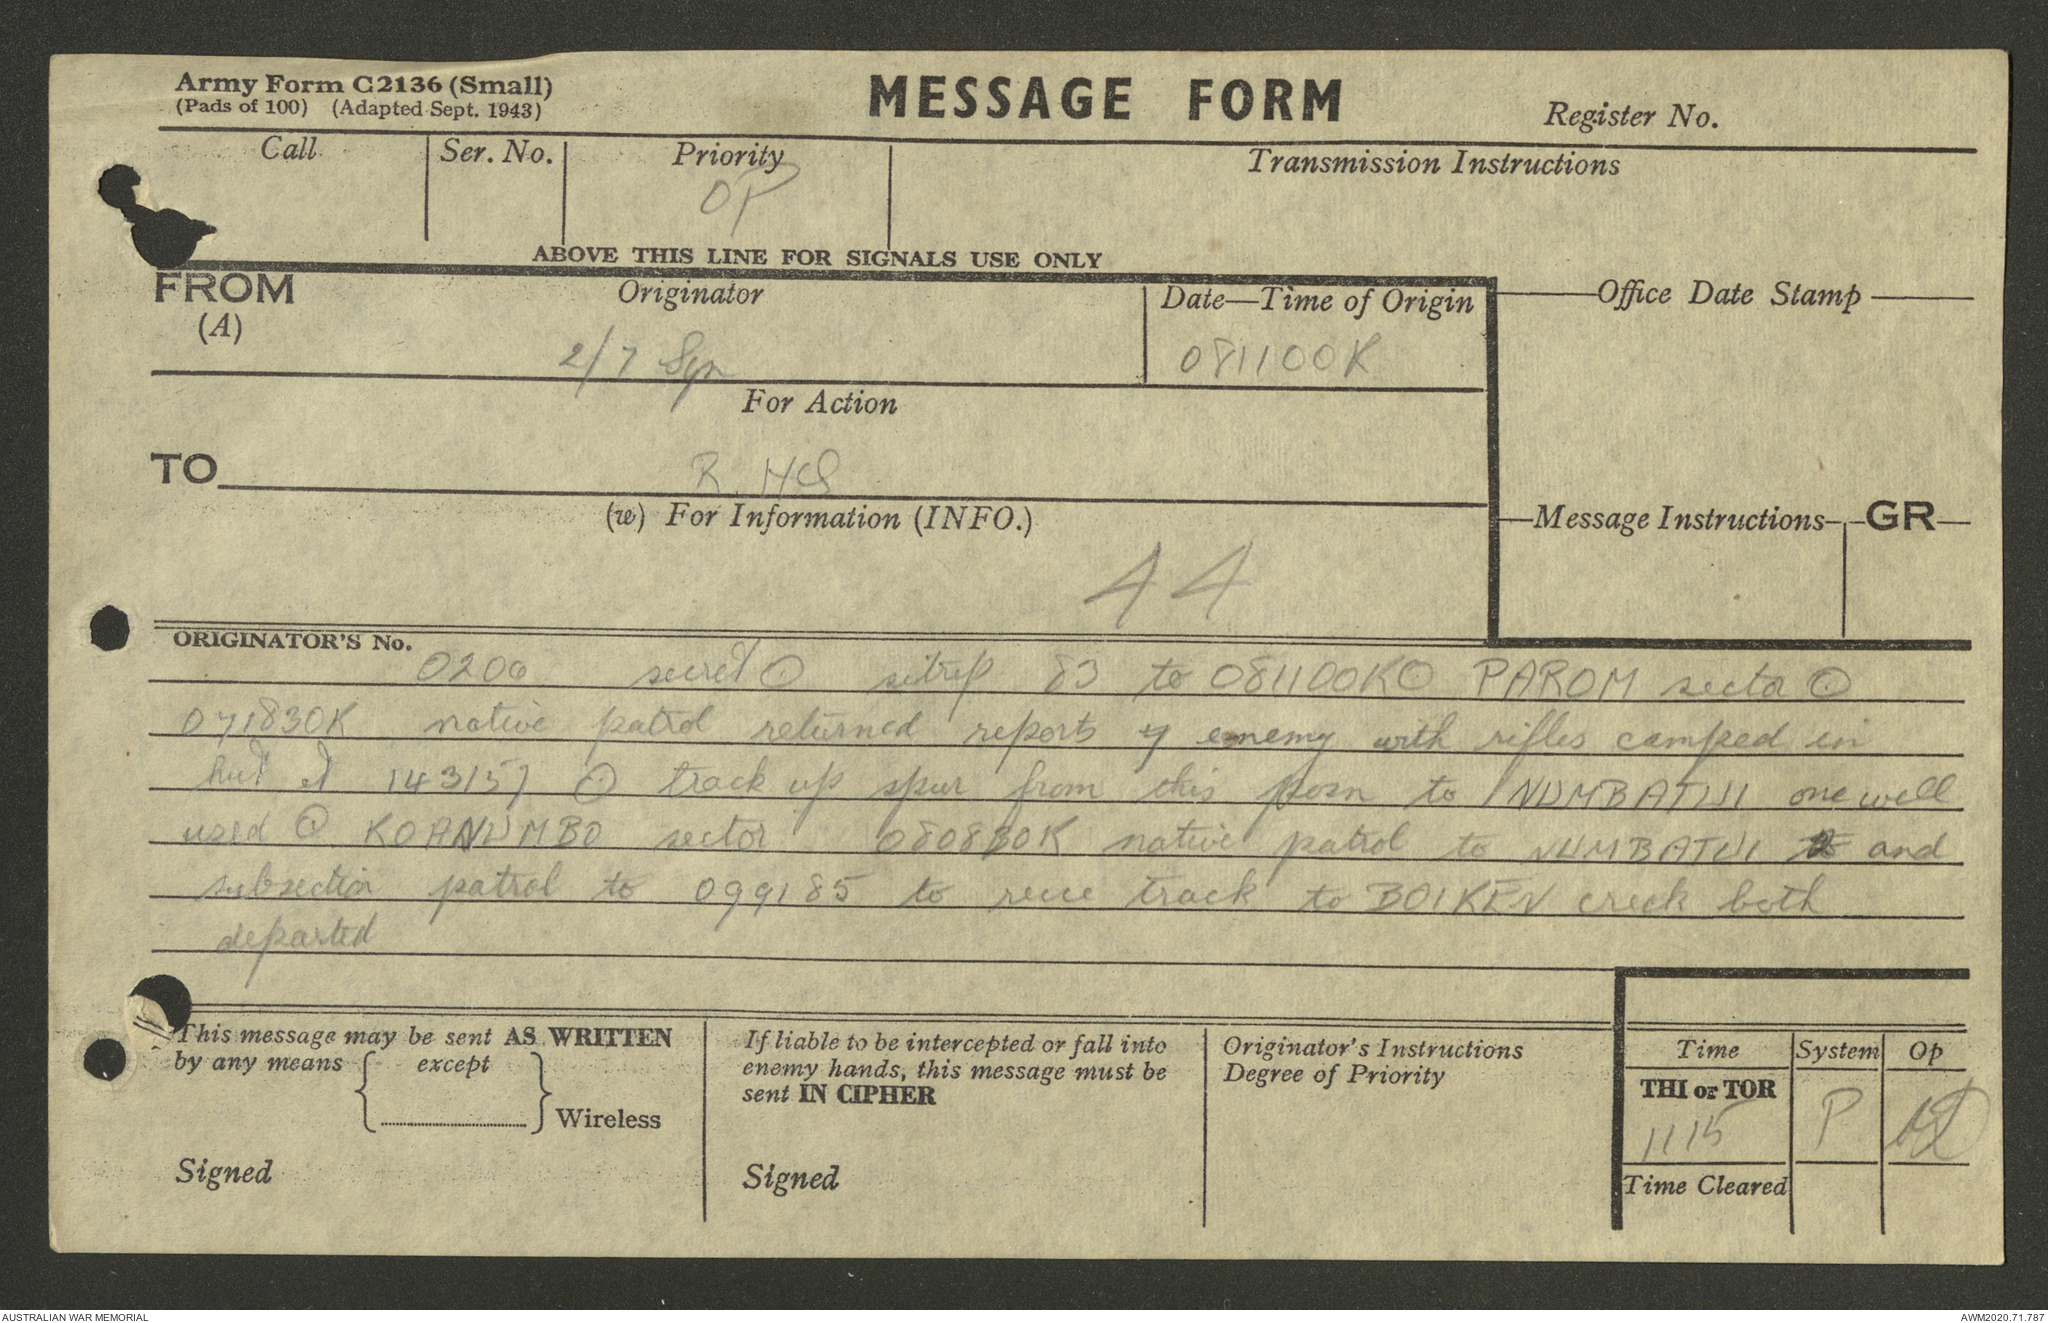 Army Form C2136 (Small)
(Pads of 100) (Adapted Sept. 1943)
MESSAGE FORM
Register No.
Call
Ser. No.
Priority
OP
Transmission Instructions
ABOVE THIS LINE FOR SIGNALS USE ONLY
FROM
(A)
Originator
2/7 Sqn
Date—Time of Origin
081100K
Office Date Stamp
For Action
TO
R. HQ
(w) For Information (INFO.)
44
Message Instructions
GR
ORIGINATOR'S No.
O200 secret ⊙ sitrep 83 to 081100K ⊙ PAROM sector ⊙
071830K native patrol returned reports 4 enemy with rifles camped in
hut at 143157 ⊙ track up spur from this posn to NUMBATUI one well
used ⊙ KOANUMBO sector 080830K native patrol to NUMBATUI and
subsection patrol to 099185 to recce track to BOIKEN creek both
departed
This message may be sent AS WRITTEN
by any means { except } Wireless
Signed
If liable to be intercepted or fall into
enemy hands, this message must be
sent IN CIPHER
Signed
Originator's Instructions
Degree of Priority
Time
System
Op
THI or TOR
1115
P
Time Cleared
AUSTRALIAN WAR MEMORIAL
AWM2020.71.787